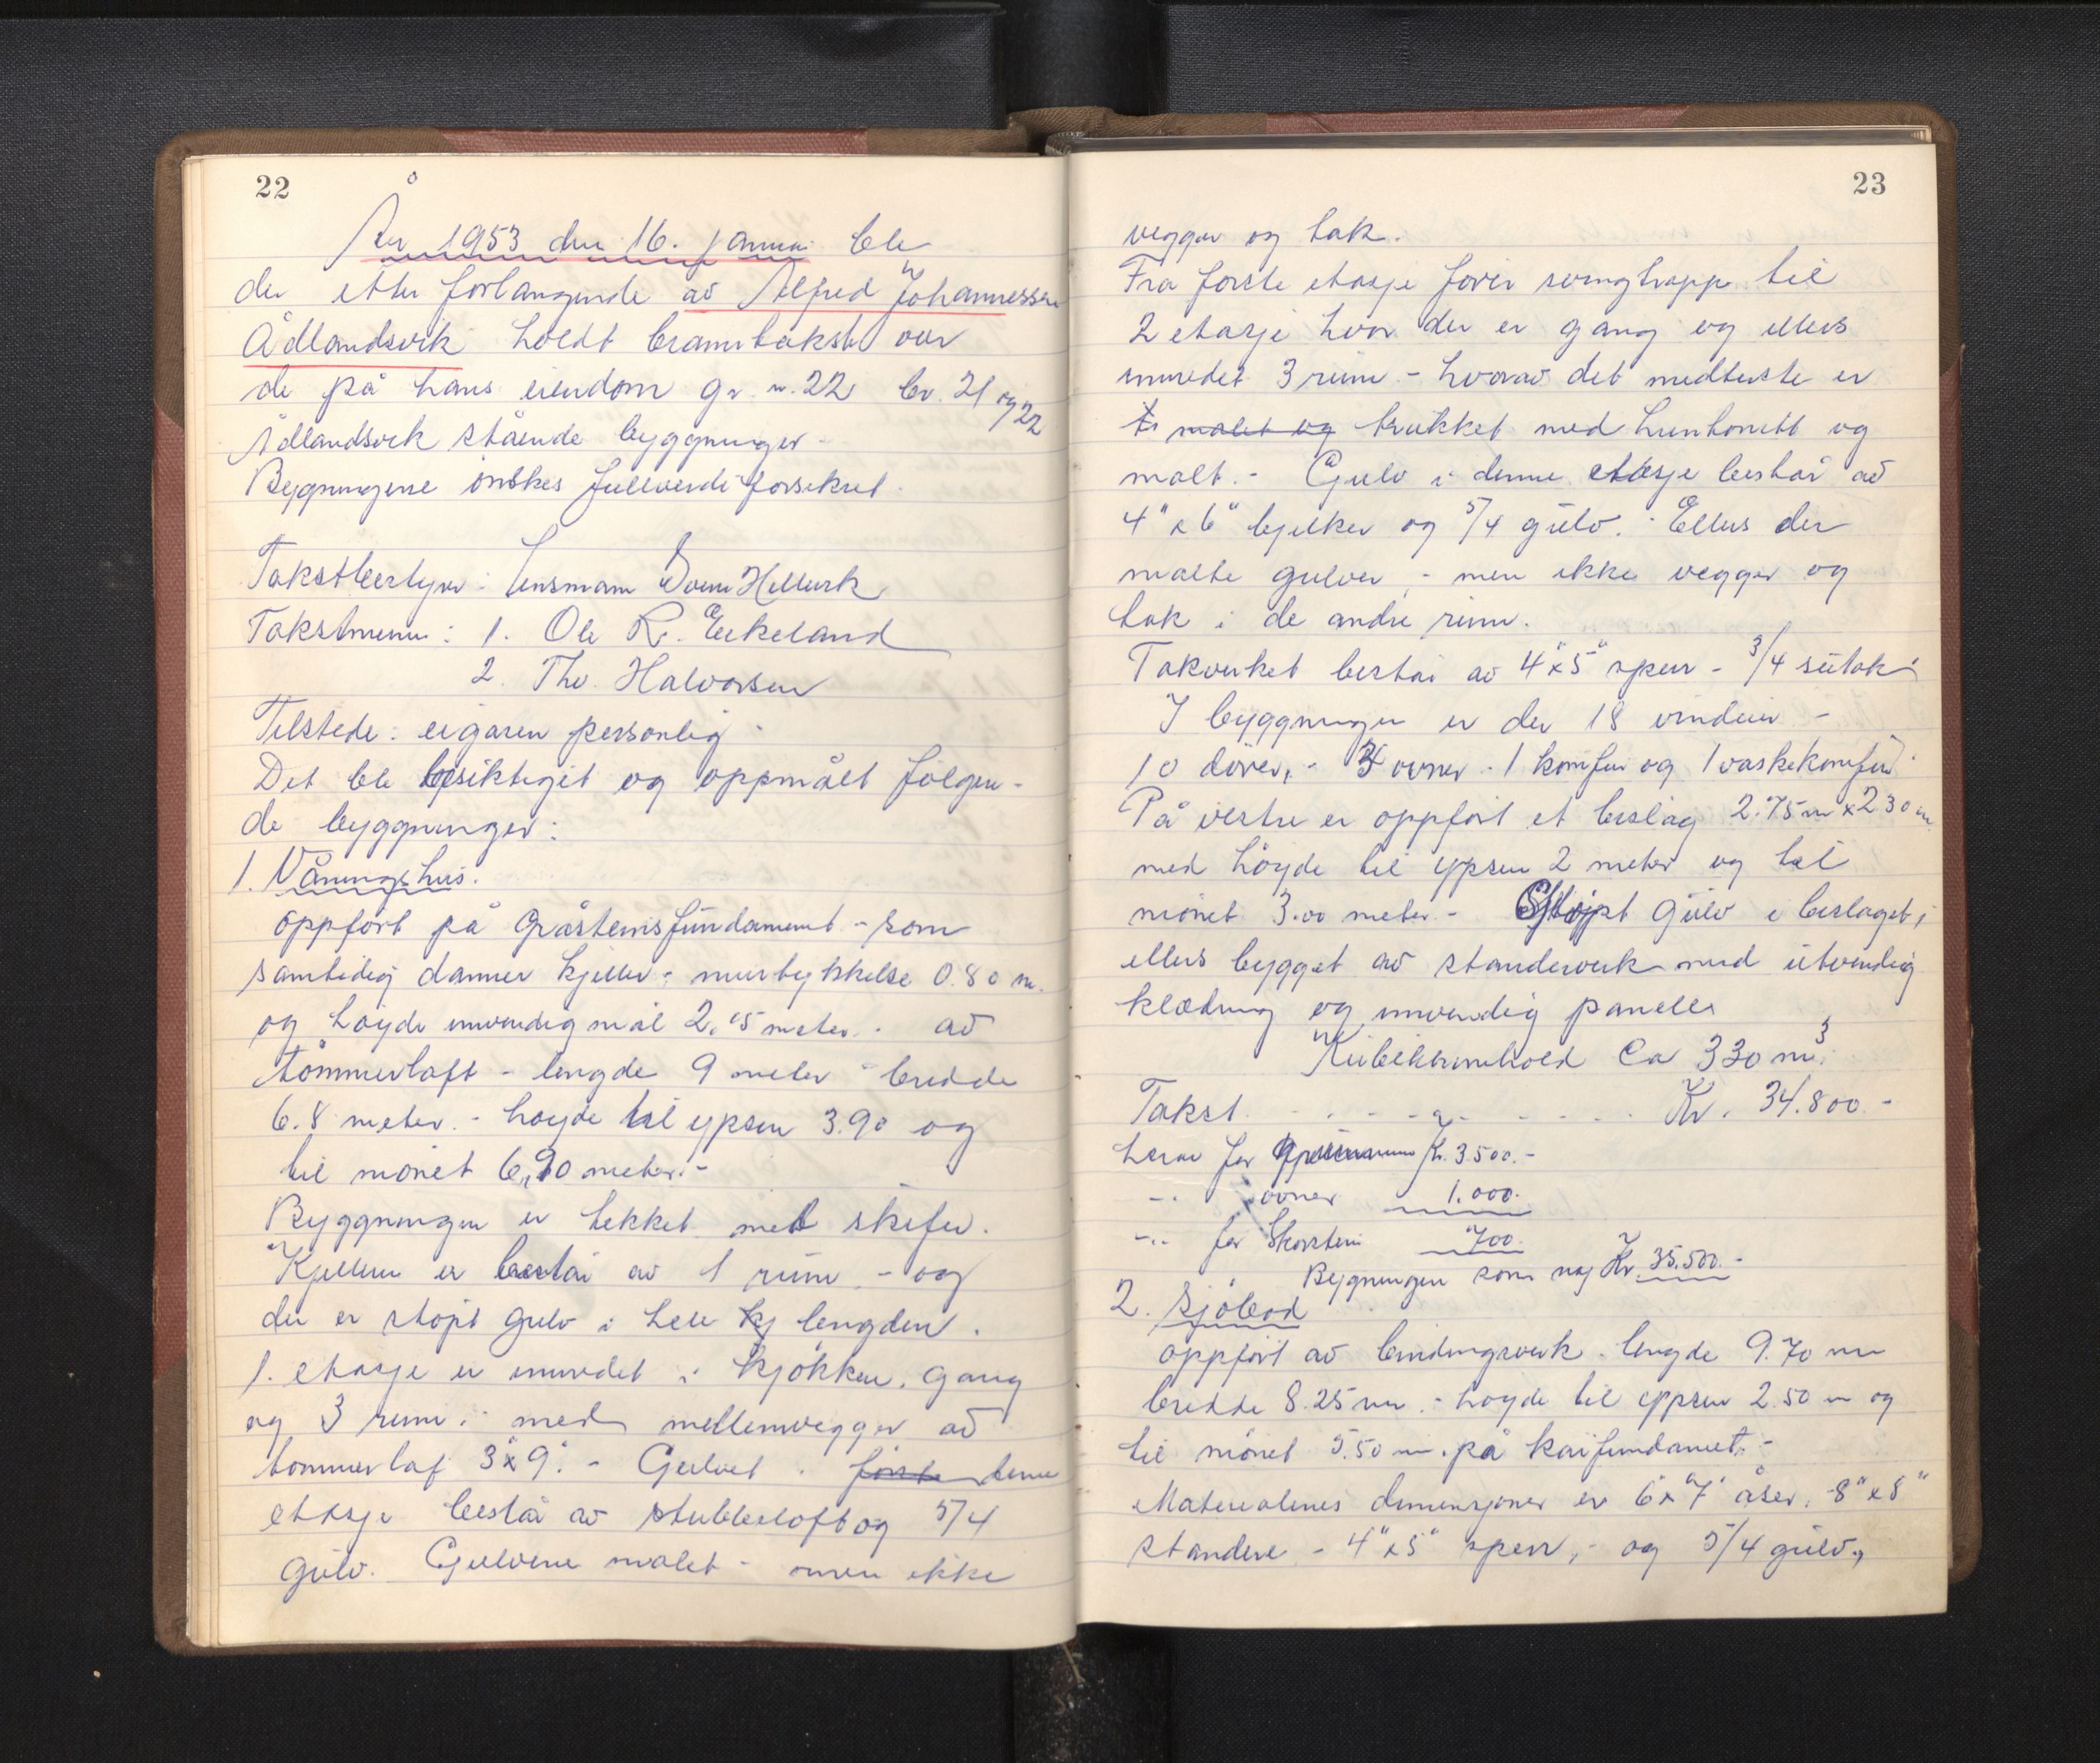 22
År 1953 den 16. januar ble
der etter forlangende av Alfred Johannessen
Ådlandsvik holdt branntakst over
de på hans eiendom gr. n. 22 br. 21 og 22
Ådlandsvik stående byggninger -
Bygningene önskes fullverdiforsikret.
Takstbestyrer: lensmann Svein Hellvik
Takstmenn: 1. Ole R. Eikeland
2. Thv. Halvorsen
Tilstede: eigaren personlig
Det ble besiktiget og oppmålt følgen-
de byggninger:
1. Våningshus:
oppfört på gråsteinsfundament - som
samtidig danner kjeller - murtykkelse 0.80 m.
og höyde innvendig mål 2,15 meter - av
tömmerlaft - lengde 9 meter - bredde
6.8 meter. - höyde til gpsen 3.90 og
til mönet 6,90 meter. -
Byggningen er tekket med skifer.
Kjelleren er består av 1 rum, - og
der er stöpt gulv i hele kj lengden.
1. etasje er innredet i kjökken, gang
og 3 rum i med mellemvegger av
tömmerlaf 3"x9". - Gulvet i förste denne
etasje består av stubbeloft og 5/4
gulv. Gulvene malet - men ikke
23
vegger og tak.
Fra förste etasje förer svingtrapp til
2 etasje hvor der er gang og ellers
innredet 3 rum - hvorav det midterste er
malet og trukket med huntonitt og
malt. - Gulv i denne etasje består av
4"x6" bjelker og 5/4 gulv. - Ellers der
malte gulver, - men ikke vegger og
tak i de andre rum.
Takverket består av 4"x5" sperr - 3/4 sutak
I byggningen er der 18 vinduer -
10 dörer, - 3 ovner - 1 komfur og 1 vaskekomfur
På vestre er oppfört et bislag 2.75 m x 2.30 m.
med höyde til gpsen 2 meter og til
mönet 3.00 meter - Stöpt gulv i bislaget,
ellers bygget av standerverk med utvendig
klædning og innvendig panell
Kubikkinnhold Ca 330 m3.
Takst - - - - - - - Kr. 34.800 -
herav for Kr. 3500.-
-"- ovner 1.000.
-"- for Skorstein 700.
Bygningen som ny Kr. 35.500.-
2. Sjöbod
oppfört av bindingsverk - lengde 9.70 m
bredde 8.25 m. - höyde til gpsen 2.50 m og
til mönet 5.50 m. på kaifundamet. -
Materialenes dimensjoner er 6"x7" åser, 8"x8"
standere - 4"x5" sperr, - og 5/4 gulv,